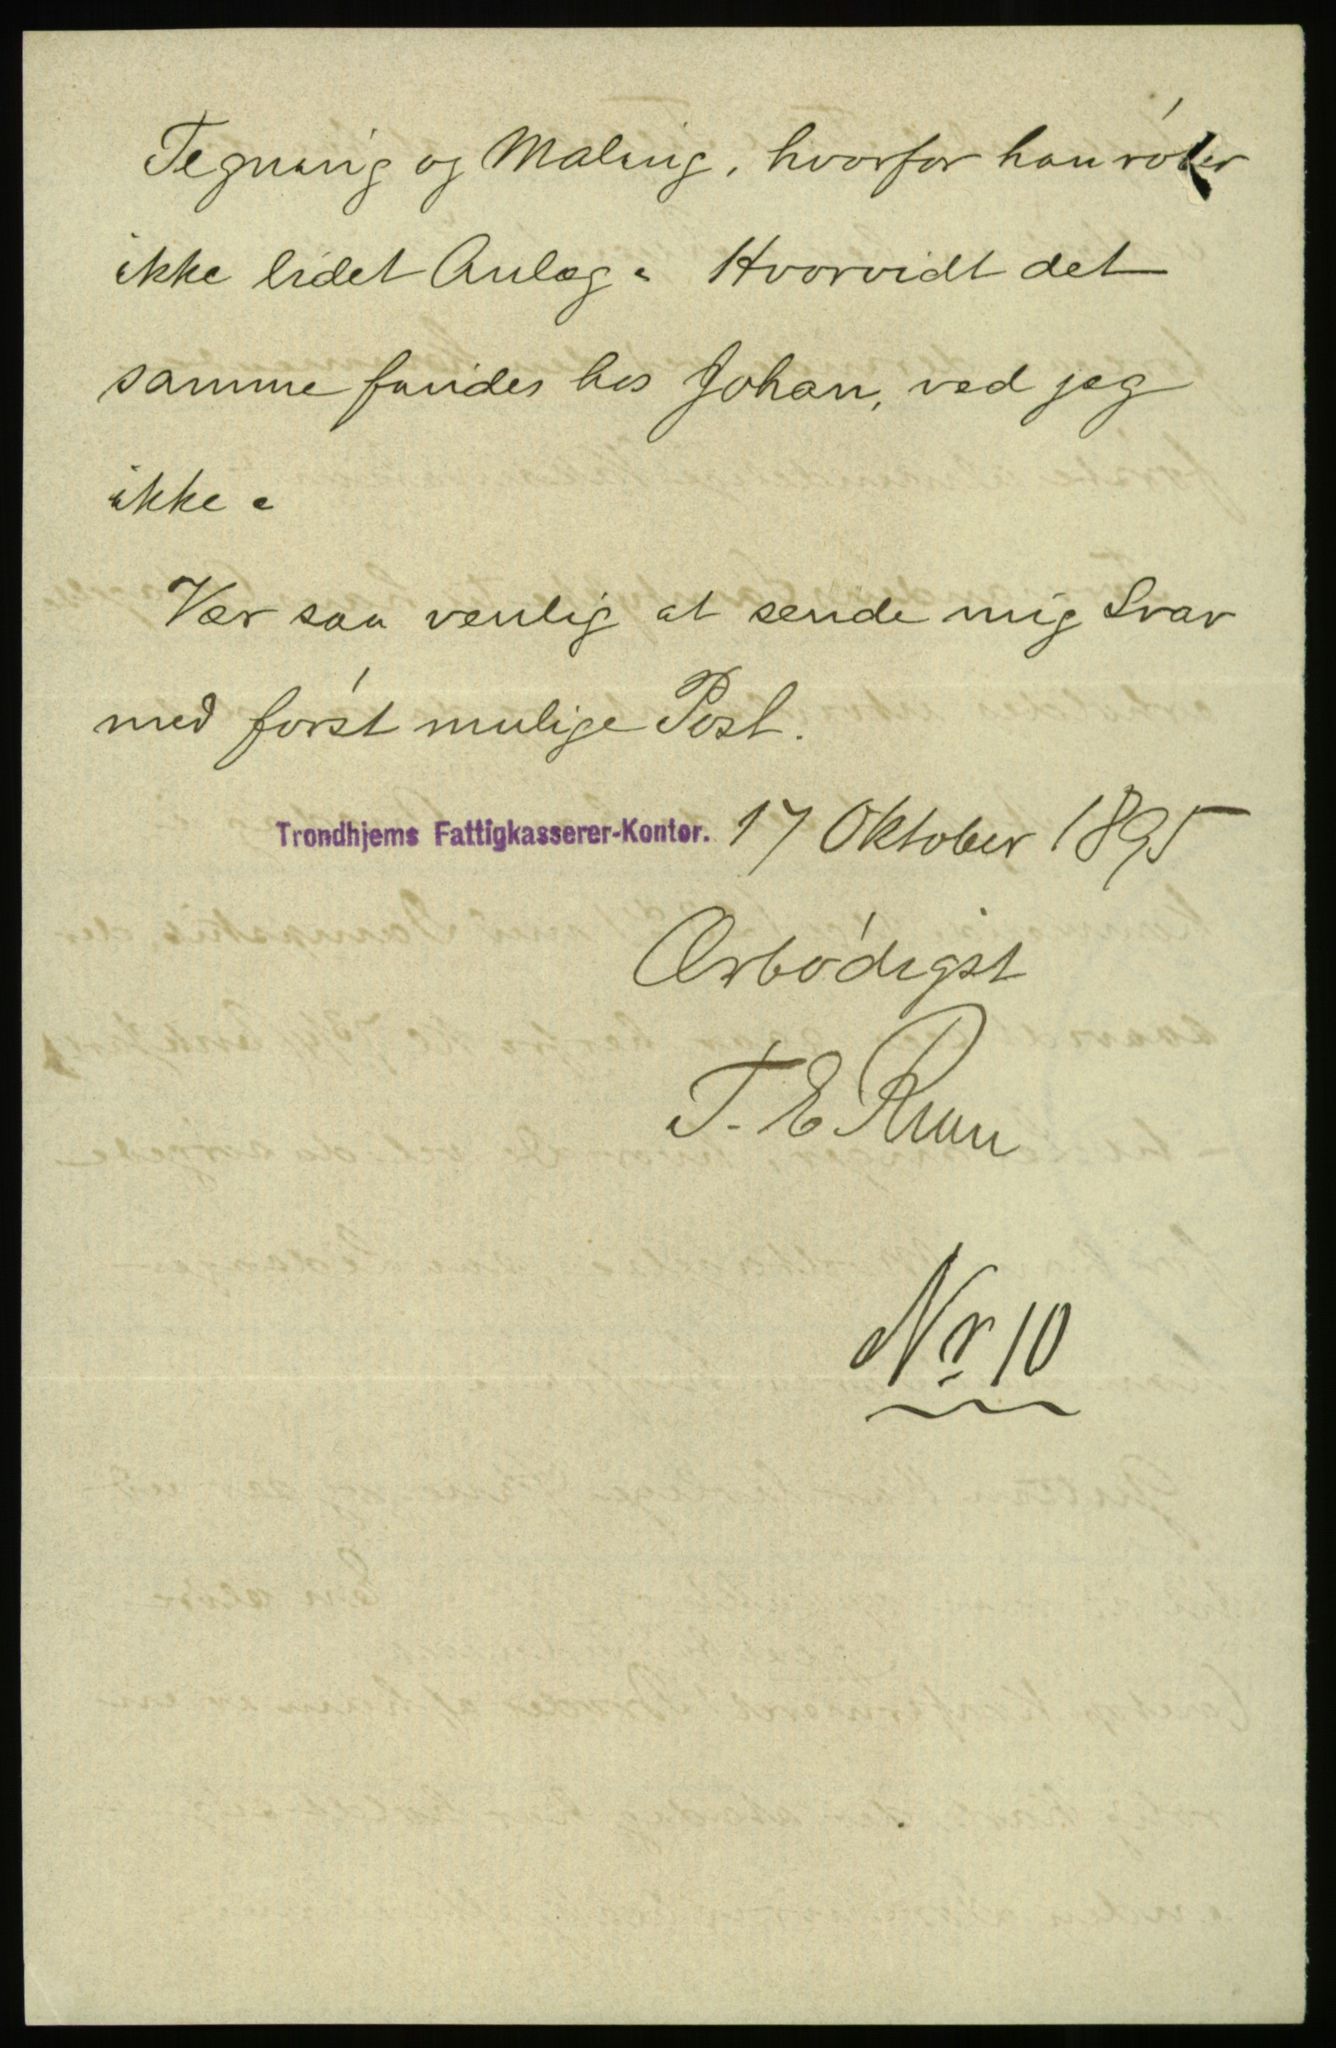 Tegning og Maling, hvorfor han røber
ikke lidet Anlæg. Hvorvidt det
samme findes hos Johan, ved jeg
ikke.
Vær saa venlig at sende mig Svar
med først mulige Post.
Trondhjems Fattigkasserer-Kontor. 17 Oktober 1895
Ærbødigst
T. E.
Nr 10